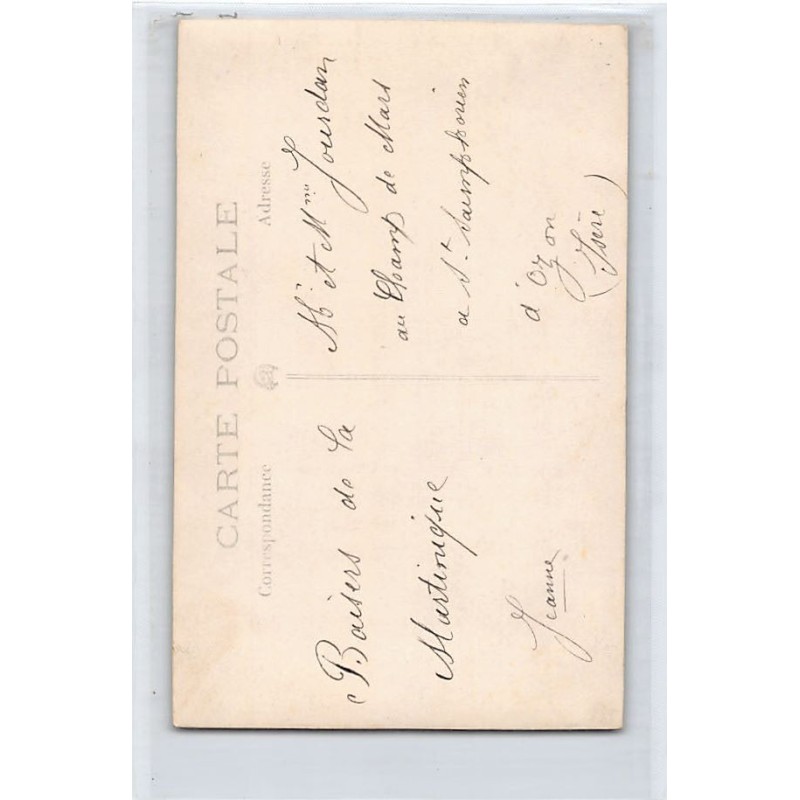 CARTE POSTALE
Correspondance
Baisers de la
Martinique
Jeanne
Adresse
Mr et Mme Jourdan
au Champ de Mars
a St Saimphorien
d'Ozon
(Isère)